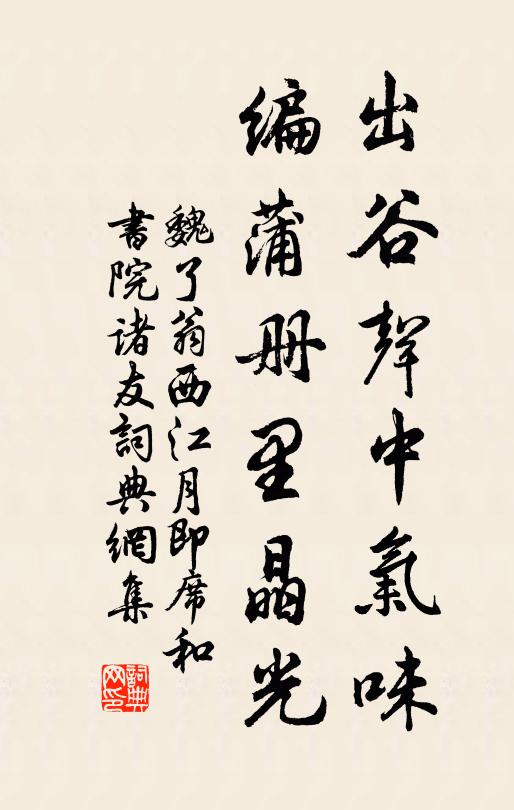 出谷聲中氣味
編蒲册里晶光
魏了翁西江月即席和
書院诸友詞典網集
詞典
网印